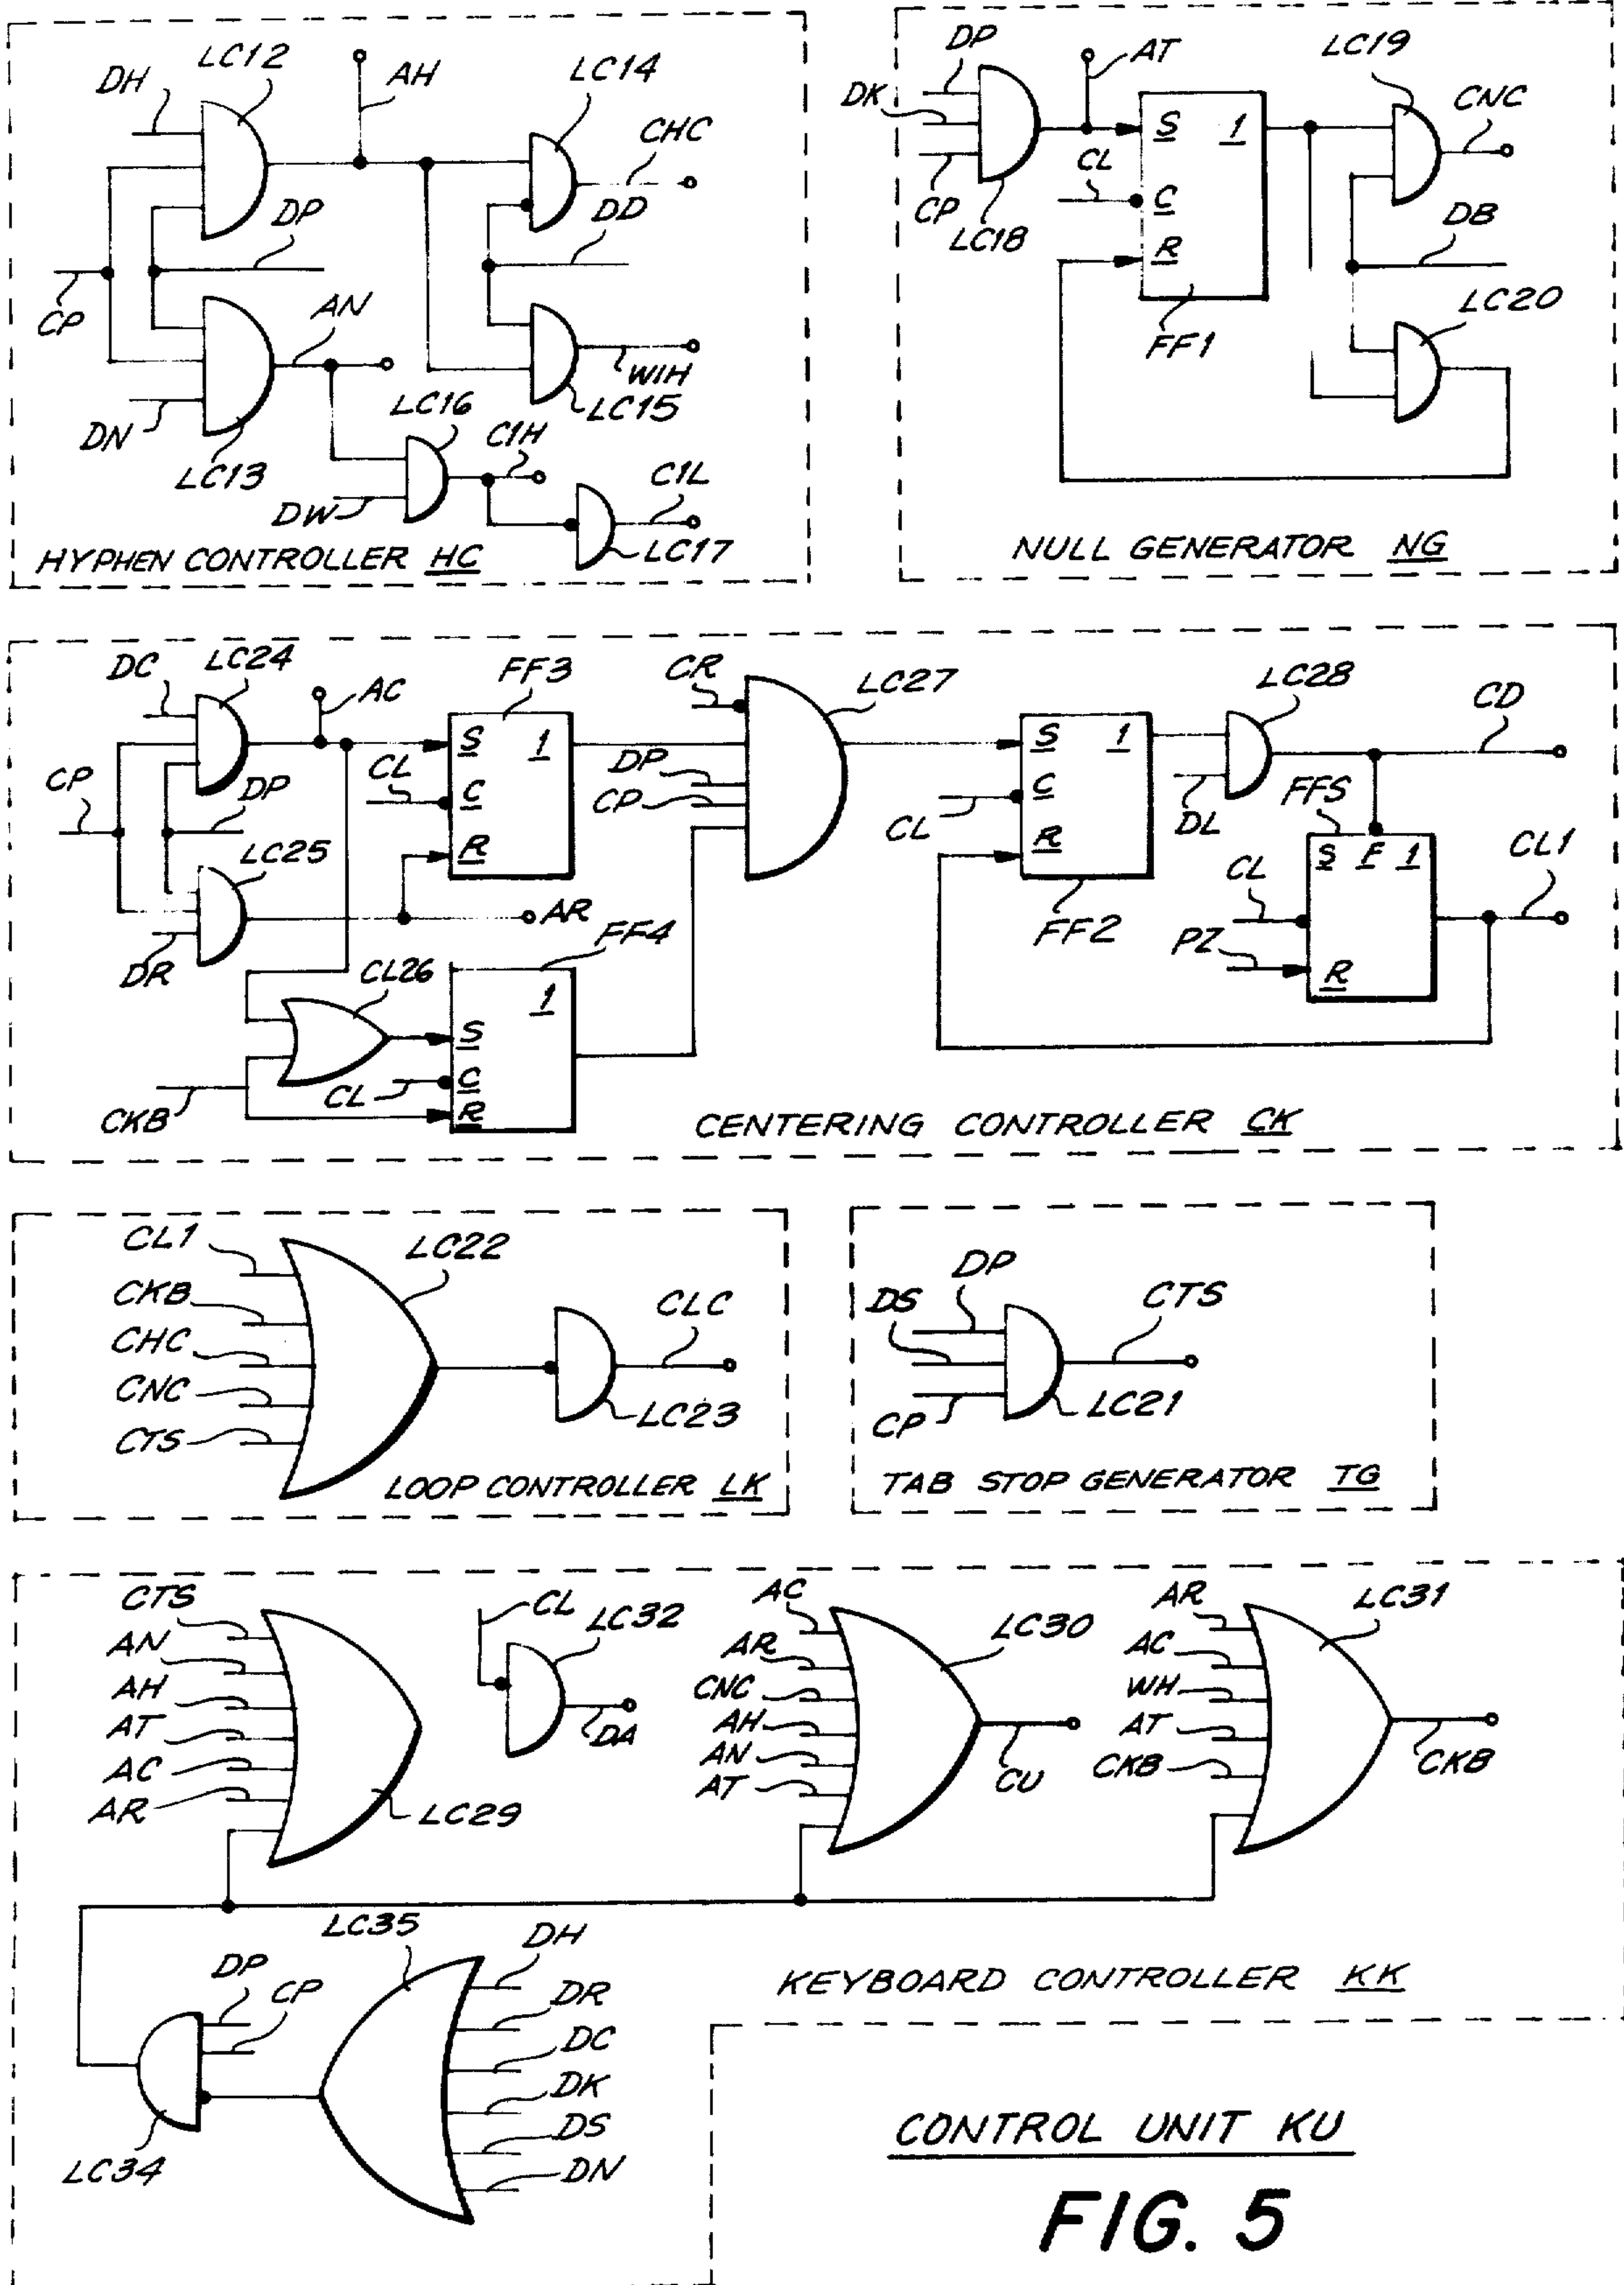 LC12
DH
AH
LC14
CHC
DP
DD
CP
AN
DN
LC13
LC16
WIH
LC15
C1H
C1L
DW
LC17
HYPHEN CONTROLLER HC
DP
AT
LC19
DK
CNC
S 1
CL
C
CP
LC18
R
DB
LC20
FF1
NULL GENERATOR NG
DC
LC24
AC
FF3
CR
LC27
LC28
CD
S 1
CL
C
DP
CP
R
CP
DP
LC25
S 1
CL
C
R
DL
FFS
S F 1
CL
CL1
PZ
R
FF2
AR
DR
FF4
CL26
1
S
CL
C
CKB
R
CENTERING CONTROLLER CK
CL1
LC22
CKB
CHC
CLC
CNC
CTS
LC23
LOOP CONTROLLER LK
DP
DS
CTS
CP
LC21
TAB STOP GENERATOR TG
CTS
AN
AH
AT
AC
AR
LC29
CL
LC32
DA
AC
AR
CNC
AH
AN
AT
LC30
CU
AR
AC
WH
AT
CKB
LC31
CKB
LC35
DP
CP
DH
DR
DC
DK
DS
DN
LC34
KEYBOARD CONTROLLER KK
CONTROL UNIT KU
FIG. 5